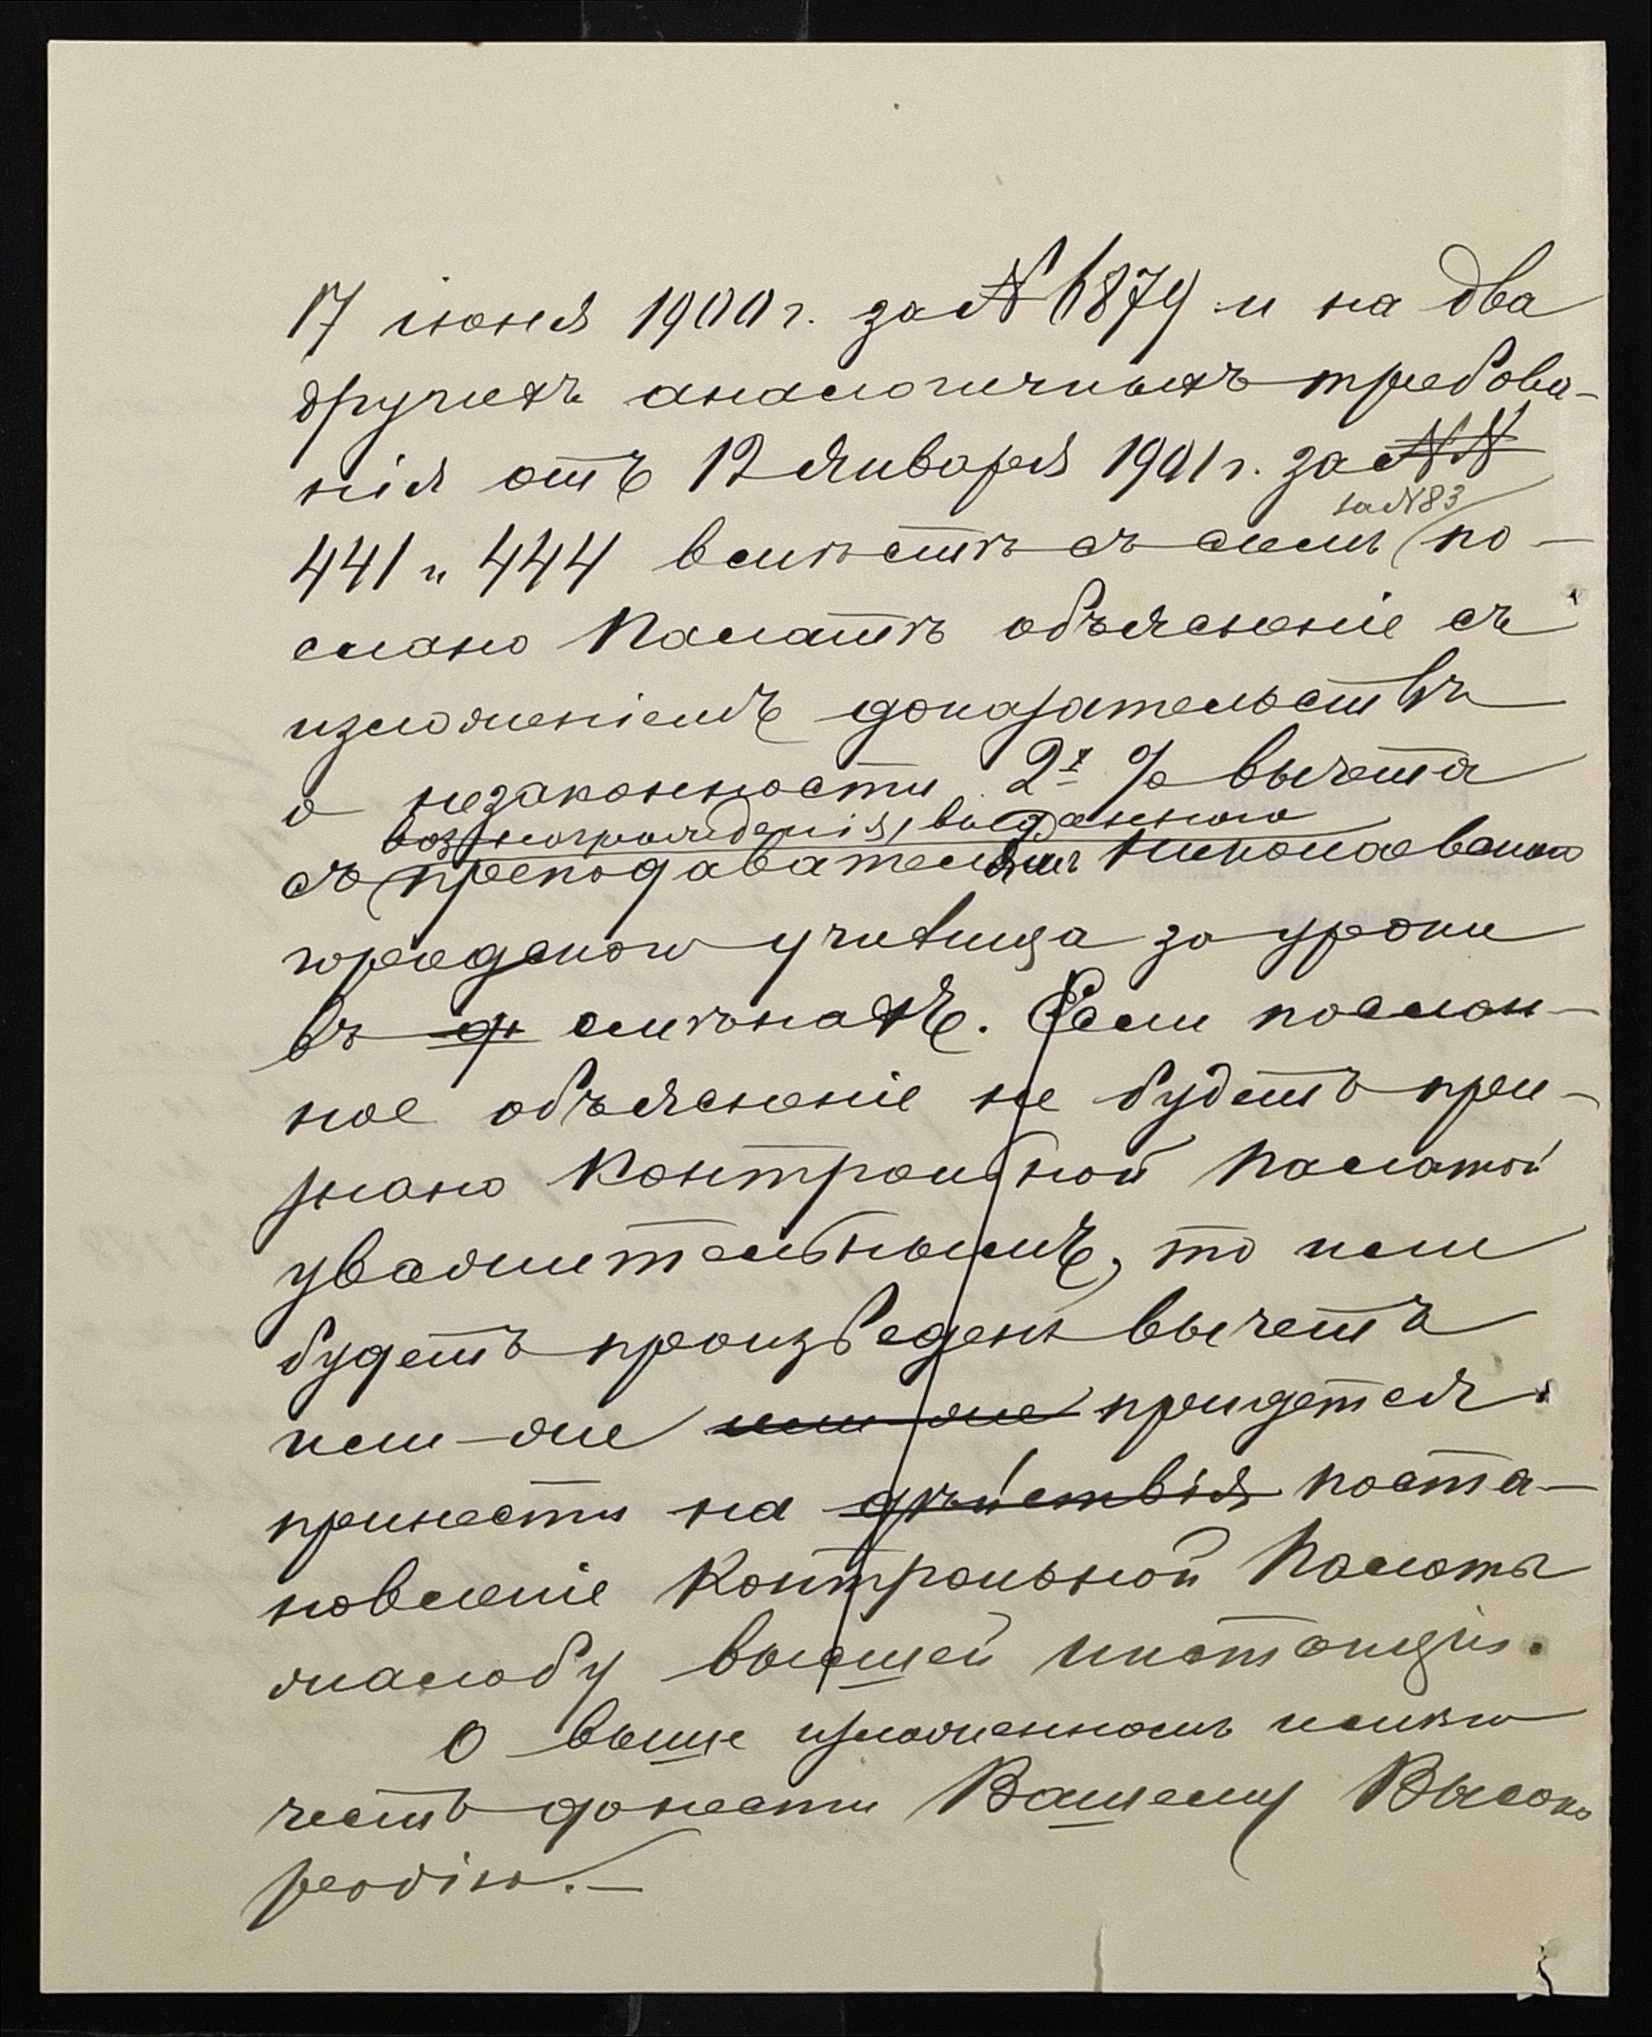 17 іюня 1900 г. за № 6879 и на два
другихъ аналогичныхъ требова-
нія отъ 12 Января 1901 г. за №№
за №83
441 и 444 вмѣстѣ съ симъ по-
слано Палатѣ объясненіе съ
изложеніемъ доказательствъ
о незаконности 2х % вычета
вознагражденія, выданнаго
съ преподавателямъ Николаевскаго
городского училища за уроки
въ смѣнахъ. Если послан-
ное объясненіе не будетъ при-
знано Контрольной Палатой
уважительнымъ, то или
будетъ произведенъ вычетъ
или-же или-же придется
принести на дѣйствія поста-
новленіе Контрольной Палаты
жалобу высшей инстанціи.
О выше изложенномъ имѣю
честь донести Вашему Высоко
родію.—